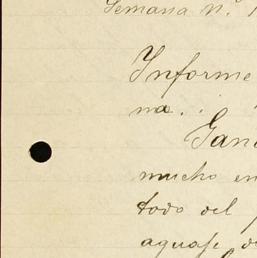 Semana n.º 1
Informe
ma..
Gana
mucho en
todo del
aguaje de